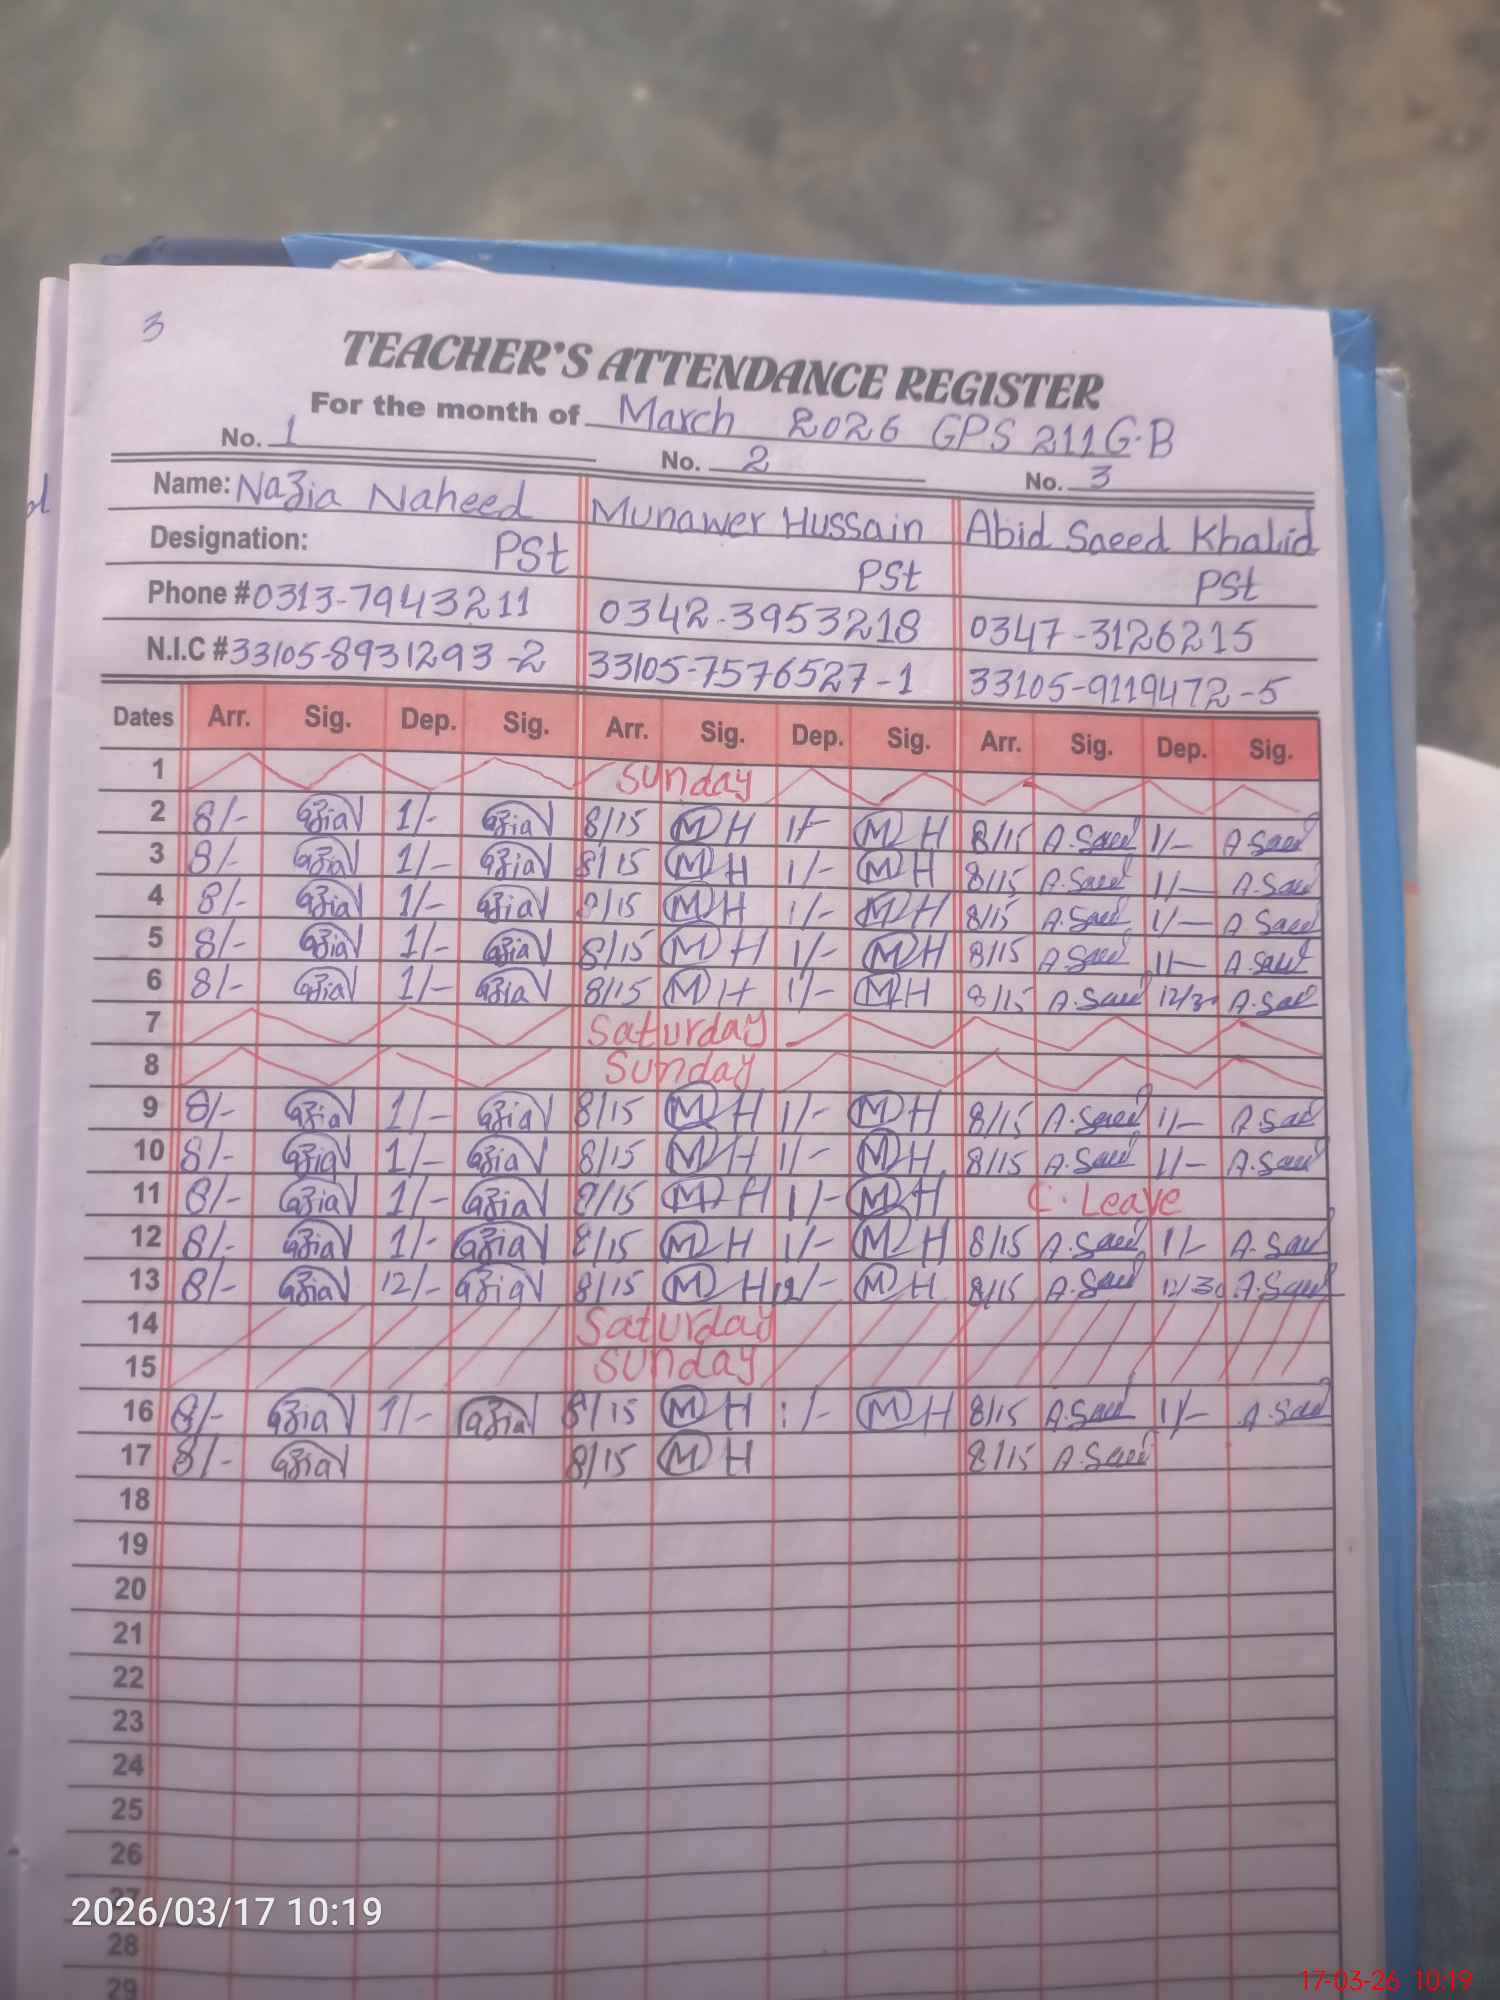 3
TEACHER'S ATTENDANCE REGISTER
For the month of March 2026 GPS 211 G.B
No. 1 No. 2 No. 3
Name: Nazia Naheed Munawer Hussain Abid Saeed Khalid
Designation: PSt PSt PSt
Phone # 0313-7943211 0342-3953218 0347-3126215
N.I.C # 33105-8931293-2 33105-7576527-1 33105-9119472-5
Dates Arr. Sig. Dep. Sig. Arr. Sig. Dep. Sig. Arr. Sig. Dep. Sig.
1 Sunday
2 8/- 1/- 8/15 M H 1/- M H 8/15 A.Saeed 1/- A.Saeed
3 8/- 1/- 8/15 M H 1/- M H 8/15 A.Saeed 1/- A.Saeed
4 8/- 1/- 8/15 M H 1/- M H 8/15 A.Saeed 1/- A.Saeed
5 8/- 1/- 8/15 M H 1/- M H 8/15 A.Saeed 1/- A.Saeed
6 8/- 1/- 8/15 M H 1/- M H 8/15 A.Saeed 12/30 A.Saeed
7 Saturday
8 Sunday
9 8/- 1/- 8/15 M H 1/- M H 8/15 A.Saeed 1/- A.Saeed
10 8/- 1/- 8/15 M H 1/- M H 8/15 A.Saeed 1/- A.Saeed
11 8/- 1/- 8/15 M H 1/- M H C. Leave
12 8/- 1/- 8/15 M H 1/- M H 8/15 A.Saeed 1/- A.Saeed
13 8/- 12/- 8/15 M H 12/- M H 8/15 A.Saeed 12/30 A.Saeed
14 Saturday
15 Sunday
16 8/- 1/- 8/15 M H 1/- M H 8/15 A.Saeed 1/- A.Saeed
17 8/- 8/15 M H 8/15 A.Saeed
18
19
20
21
22
23
24
25
26
27
28
29
2026/03/17 10:19
17-03-26 10:19